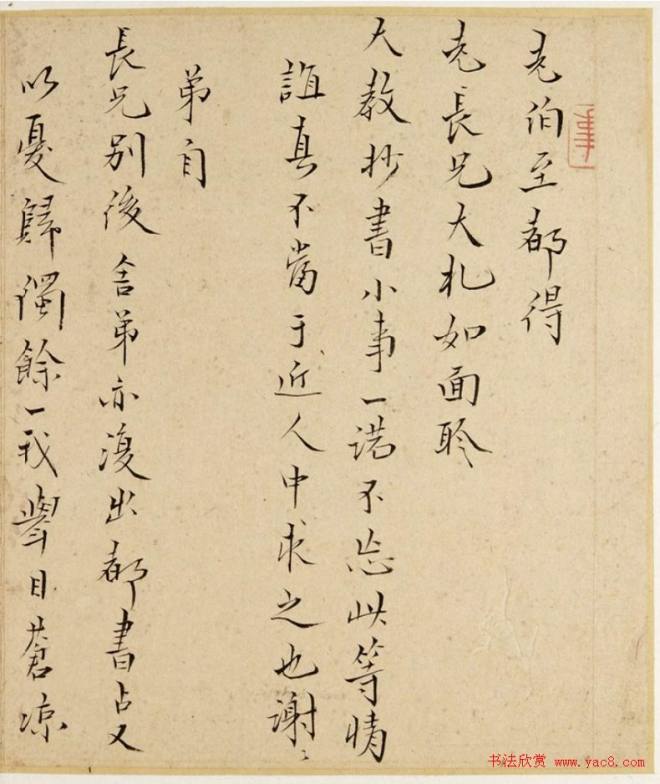 老伯至都得
老長兄大札如面聆
大教抄書小事一諾不忘此等情
誼真不當于近人中求之也謝〻
弟自
長兄別後舍弟亦復出都書占又
以憂歸獨餘一我舉目蒼凉
书法欣赏 www.yac8.com